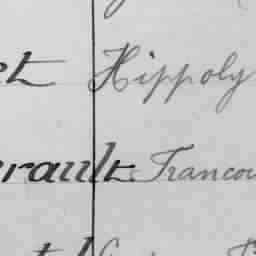 et Hippoly
rault Francou